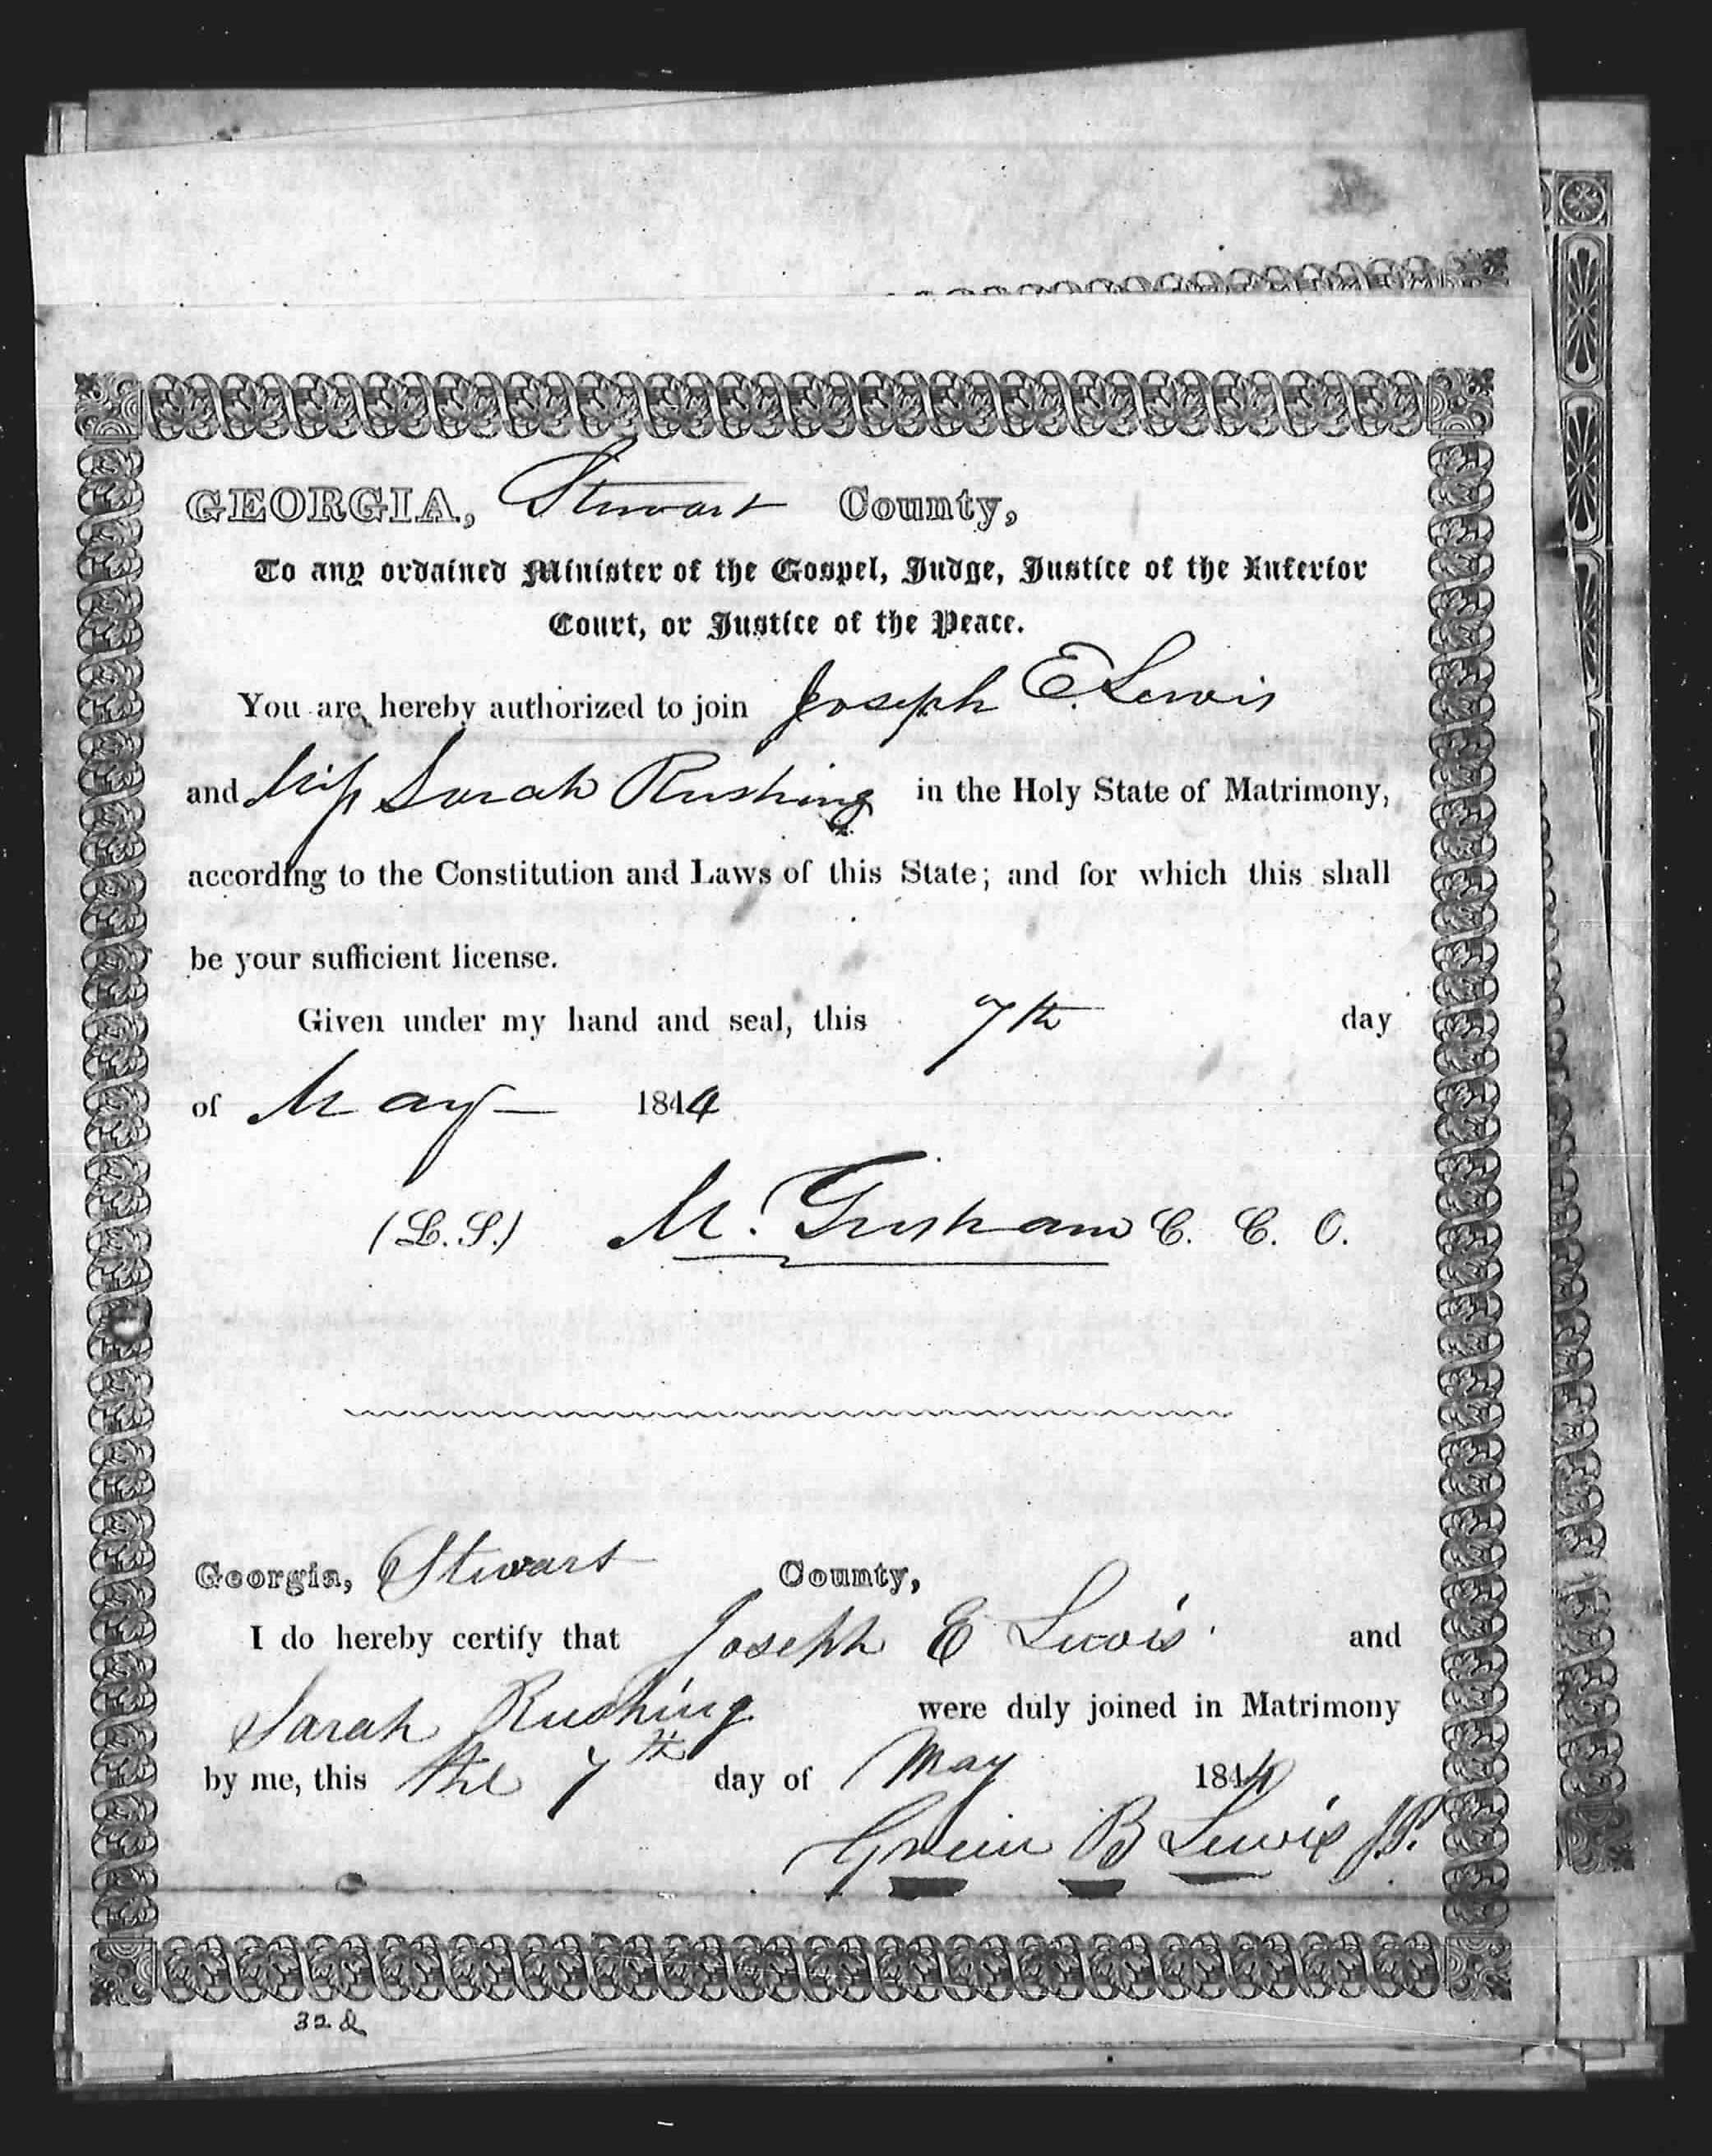 GEORGIA, Stewart County,
To any ordained Minister of the Gospel, Judge, Justice of the Inferior
Court, or Justice of the Peace.
You are hereby authorized to join Joseph E. Lewis
and Miss Sarah Rushing in the Holy State of Matrimony,
according to the Constitution and Laws of this State; and for which this shall
be your sufficient license.
Given under my hand and seal, this 7th day
of May 1844
(L.S.) M. Grisham C. C. O.
Georgia, Stewart County,
I do hereby certify that Joseph E Lewis and
Sarah Rushing were duly joined in Matrimony
by me, this the 7th day of May 1844
Green B Lewis JP.